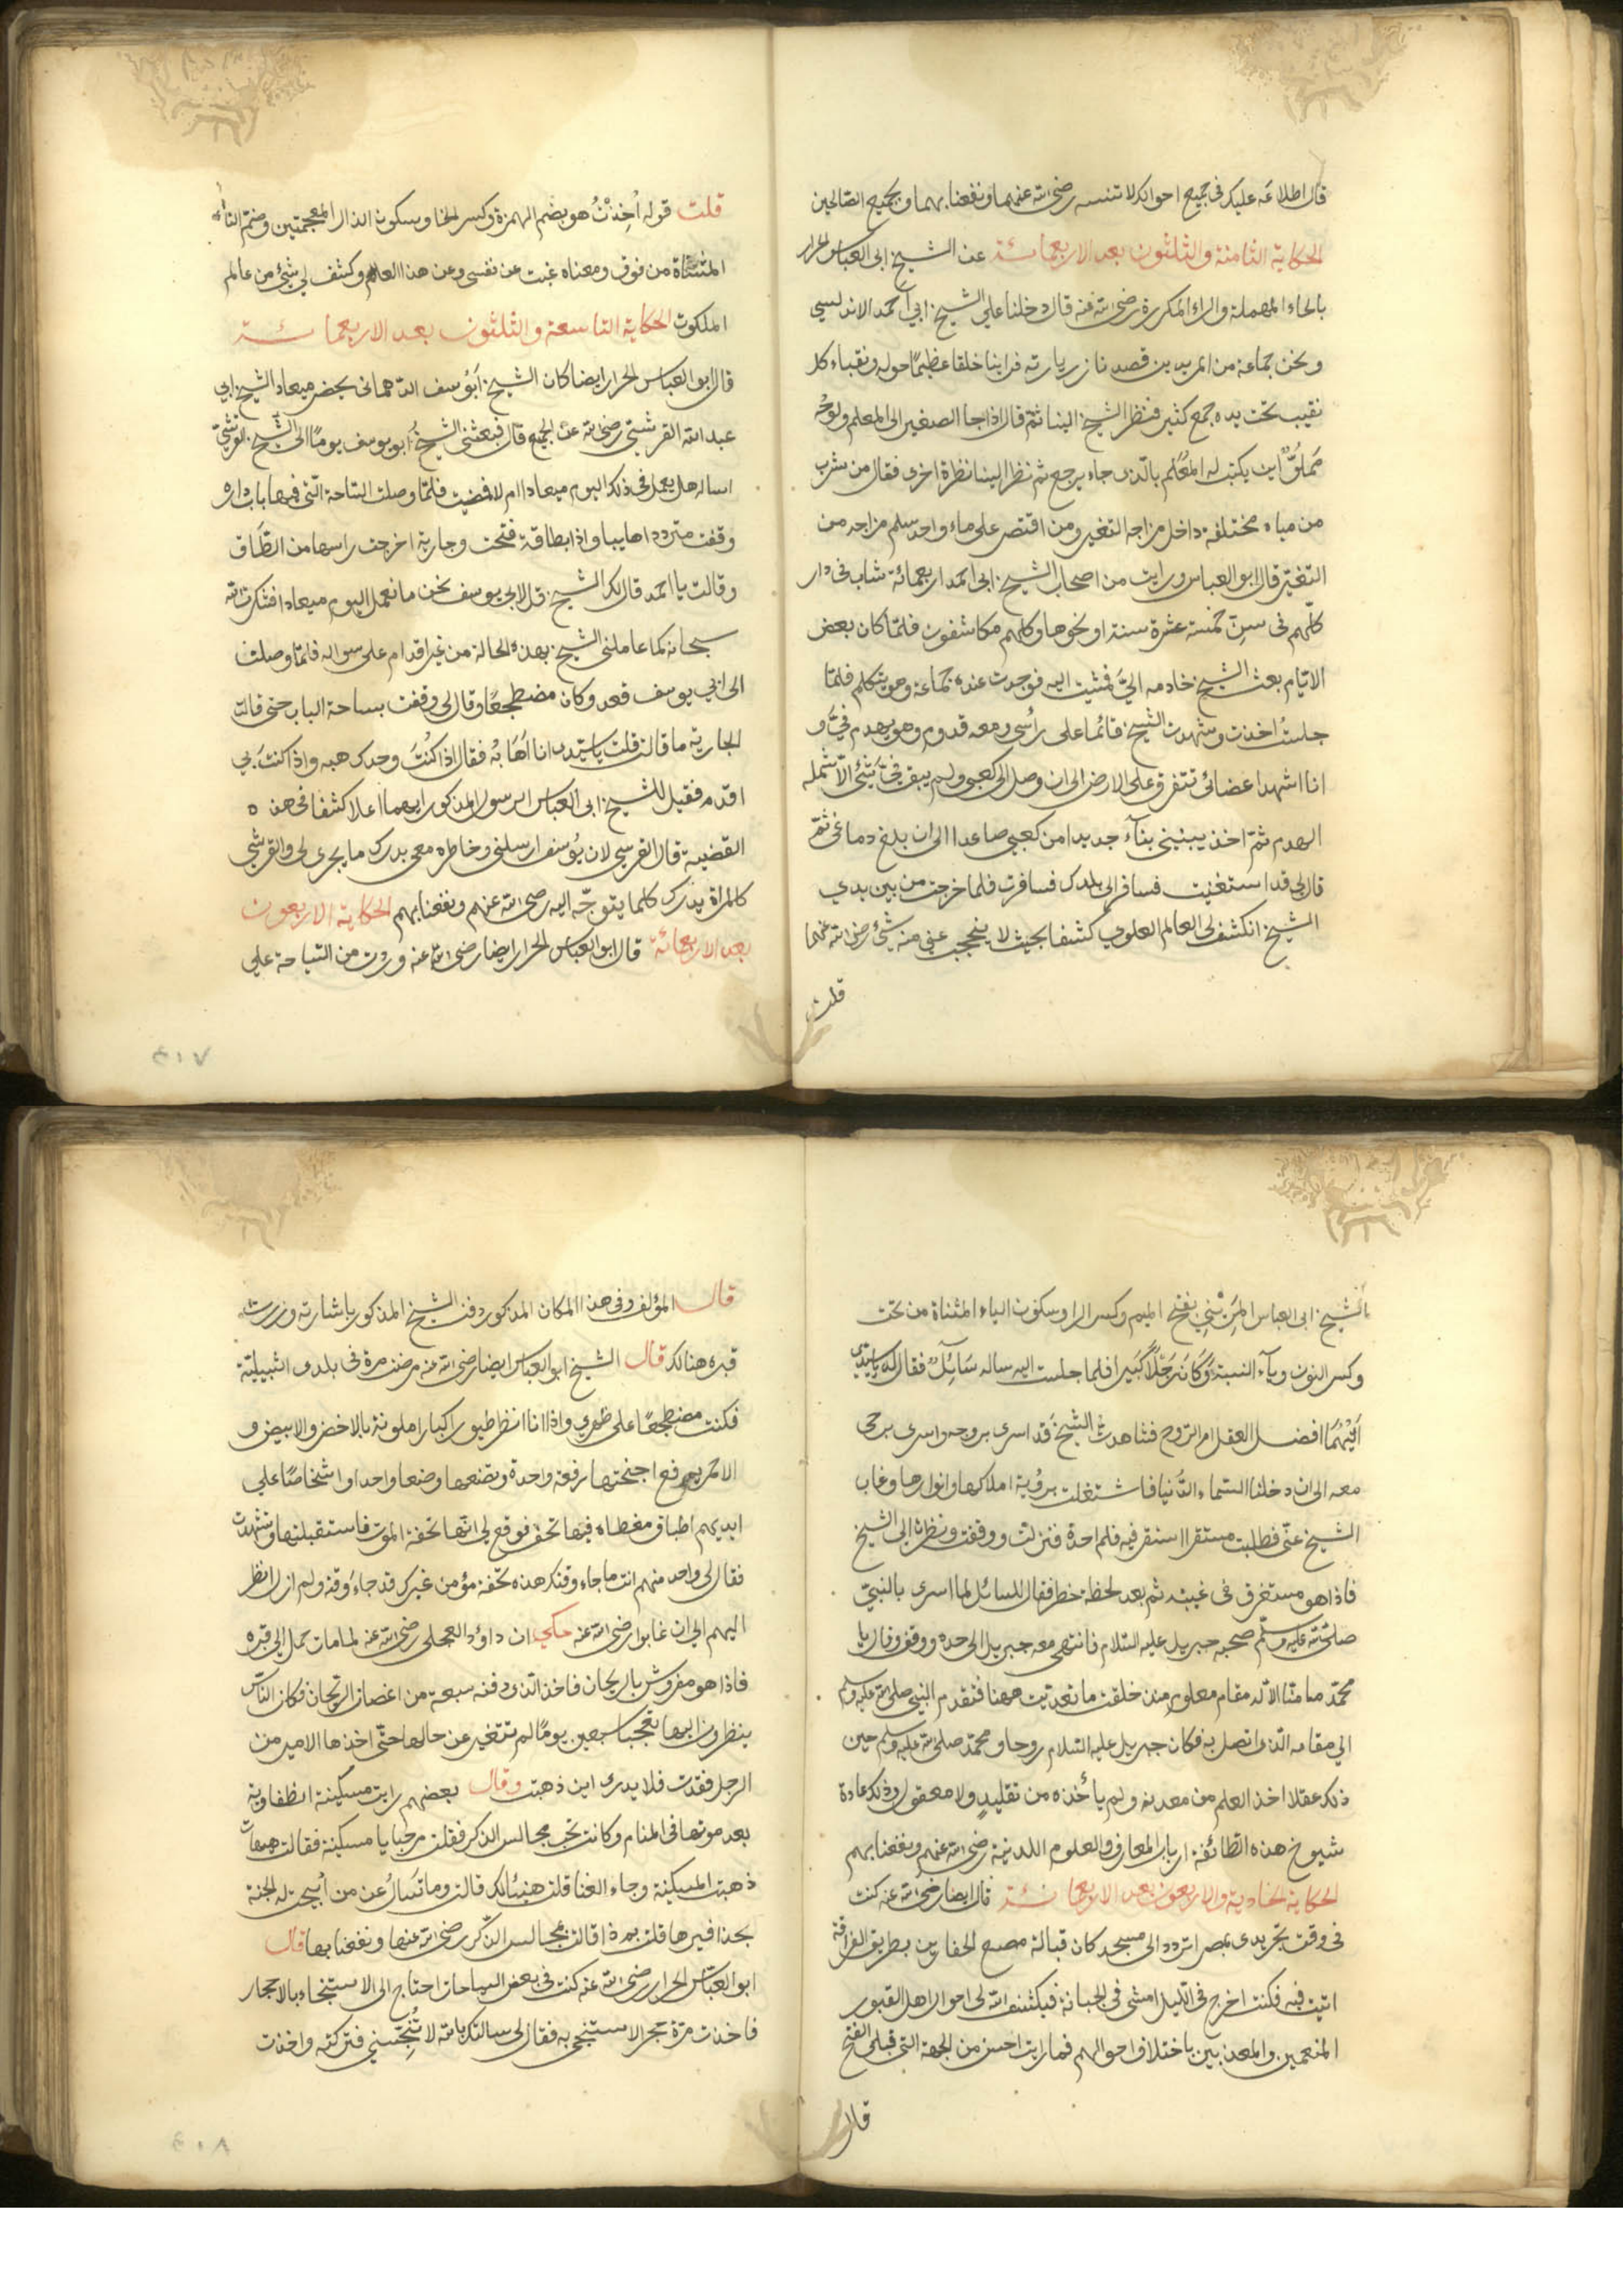 قال اطلاعه عليك في جميع احوالك لا تنسه رضي الله عنهما ونفعنا بهما وبجميع الصالحين
الحكاية الثامنة والثلثون بعد الاربعمائة عن الشيخ ابي العباس الحرار
بالحاء المهملة والراء المكررة رضي الله عنه قال دخلنا علي الشيخ ابي احمد الاندلسي
ونحن جماعة من المريدين قصدنا زيارته فراينا خلقا عظيمًا حوله ونقباء كل
نقيب تحت يده جمع كثير فنظر الشيخ الينا ثم قال اذا جا الصغير الى المعلم ولوحُه
مَملُوٌّ اين يكتب له المعُلم بالّذى جاء يرجع ثم نظر الينا نظرة اخرى فقال من شرب
من مياه مختلفة داخل مزاجه التغير ومن اقتصر على ماء واحد سلم مزاجه من
التغيّر قال ابو العباس ورايت من اصحاب الشيخ ابي احمد اربعمائة شاب فى دار
كلّهم فى سنِّ خمسة عشرة سنة او نحوها وكلهم مكاشفون فلمّا كان بعض
الايّام بعث الشيخ خادمه اليّ فمشيت اليه فوجدت عنده جماعة وهو يتكلم فلمّا
جلستُ اخذت وشهدت الشيخ قائما على راسى ومعه قدوم وهو يهدم فيّ و
انا اشهد اعضائى تتفرق على الارض الى ان وصل الى كعبى ولم يبق فيّ شئ الاّ شمله
الهدم ثمّ اخذ يبنينى بناءً جديدا من كعبى صاعدا الى ان بلغ دماغى ثمّ
قال لى قد استغنيت فسافر الى بلدك فسافرت فلما خرجت من بين يدي
الشيخ انكشف لى العالم العلوي كشفا بحيث لا يحجب عنى منه شئ رضى الله عنهما
قلت
قلت قوله اُخِذْتُ هو بضم الهمزة وكسر الخا وسكون الذال المعجمتين وضم التاء
المثناة من فوق ومعناه غبت عن نفسى وعن هذا العالم وكشف لى شئ من عالم
الملكوت الحكاية التاسعة والثلثون بعد الاربعمائة
قال ابو العباس الحرار ايضا كان الشيخ ابو يوسف الدهمانى يحضر ميعاد الشيخ ابي
عبد الله القرشيّ رضى الله عن الجميع قال فبعثنى الشيخُ ابو يوسف يومًا الى الشيخ القرشيّ
اساله هل يعمل فى ذلك اليوم ميعادا ام لا فمضيت فلمّا وصلت الساحة التى فيها باب داره
وقفت متردد اهابها واذا بطاقة فتحت وجارية اخرجت راسها من الطّاق
وقالت يا احمد قال لك الشيخ قل لابى يوسف نحن ما نعمل اليوم ميعادا فشكرت الله
سبحانه كما عاملنى الشيخ بهذه الحالة من غير اقدام على سواله فلمّا وصلت
الى ابي يوسف قعد وكان مضطجعًا وقال لى وقفت بساحة الباب حتى قالت
الجارية ما قالت قلت يا سيّدى انا اَهَابُهُ فقال اذا كُنْتَ وحدك هبه واذا كنت بي
اقدم فقيل للشيخ ابى العباس الرسول المذكور ايهما اعلا كشفا فى هذه
القضية قال القرشى لان يوسف ارسلنى وخاطره معى يدرك ما يجرى لى والقرشى
كالمراة يدرك كلما يتوجّه اليه رضى الله عنهم ونفعنا بهم الحكاية الاربعون
بعد الاربعمائة قال ابو العباس الحرار ايضا رضى الله عنه وردت من السّياحة علي
٤٠٧
بالشيخ ابى العباس المَرِيْنِي بفتح الميم وكسر الرا وسكون الياء المثناة من تحت
وكسر النون وياء النسبة وَكَانَ رَجُلًا كَبيرا فلما جلست اليه ساله سَائِلٌ فقال له يا سيّدى
اَيُّهُمَا افضل العقل ام الروح فشاهدتُ الشيخ قد اسرى بروحه واسرى بروحى
معه الى ان دخلنا السّماء الدُّنيا فاشتغلت برؤية املاكها وانوارها وغاب
الشيخ عنّى فطلبت مستقرا استقر فيه فلم احدة فنزلت ووقفت ونظرت الى الشيخ
فاذا هو مستغرق فى غيبته ثم بعد لحظة خطر فقال للسائل لما اسرى بالنبيّ
صلى الله عليه وسلّم صحبه جبريل عليه السّلام فانتهى معه جبريل الى حده ووقف وقال يا
محمّد ما منّا الاّ له مقام معلوم منذ خلقت ما تعديت ههنا فتقدم النبيّ صلى الله عليه وسلم
الي مقامه الّذى اتصل به فكان جبريل عليه السّلام روحا ومحمّد صلى الله عليه وسلم حين
ذلك عقلا اخذ العلم من معدنه ولم يأخذه من تقليدٍ ولا معقول وذلك عادة
شيوخ هذه الطّائفة ارباب المعارف والعلوم اللدنية رضى الله عنهم ونفعنا بهم
الحكاية الحادية والاربعون بعد الاربعمائة قال ايضا رضى الله عنه كنت
فى وقت تجريدى بمصر اتردد الى مسجد كان قبالة مصنع الحفارين بطريق القرافة
ابيت فيه فكنت اخرج فى الليل امشى فى الجبانة فيكشف الله لى احوال اهل القبور
المنعمين والمعذبين باختلاف احوالهم فما رايت احسن من الجهة التى قبلى الفتح
قال
قال المؤلف وفى هذا المكان المذكور دفن الشيخ المذكور باشارته وزرت
قبره هنالك قال الشيخ ابو العباس ايضا رضى الله عنه مرضت مرة فى بلدى اشبيلية
فكنت مضطجعًا على ظهري واذا انا انظر طيورا كبارا ملونة بالاخضر والابيض و
الاحمر يرفع اجنحتها رفعة واحدة وتضعها وضعا واحدا واشخاصًا علي
ايديهم اطباق مغطاه فيها تحف فوقع لى انّها تحفة الموت فاستقبلتها وتشهدت
فقال لى واحد منهم انت ما جاء وقتك هذه تحفة مؤمن غيرك قد جاء وقته ولم ازل انظر
اليهم الى ان غابوا رضى الله عنه حكي ان داوٗد العجلى رضى الله عنه لما مات حمل الى قبره
فاذا هو مفروش بالريحان فاخذ الّذى دفنه سبعة من اغصان الريحان فكان النّاس
ينظرون اليها تعجّبا سبعين يومًا لم تتغير عن حالها حتّى اخذها الامير من
الرجل ففقدت فلا يدرى اين ذهبت وقال بعضهم رايت مسكينة الطفاوية
بعد موتها فى المنام وكانت تحب مجالس الذكر فقلت مرحبا يا مسكينة فقالت هيهات
ذهبت المسكينة وجاء الغنا قلت هنيئا لك قالت وما تسَالُ عن من اُبيحت له الجنة
بحذافيرها قلت بم ذا قالت بمجالس الذّكر رضى الله عنها ونفعنا بها قال
ابو العبّاس الحرار رضى الله عنه كنت فى بعض السياحات احتاج الى الاستنجاء بالاحجار
فاخذت مرّة حجرا لاستنجى به فقال لى سالتك بالله لا تُنَجِّسني فتركته واخذت
٤٠٨